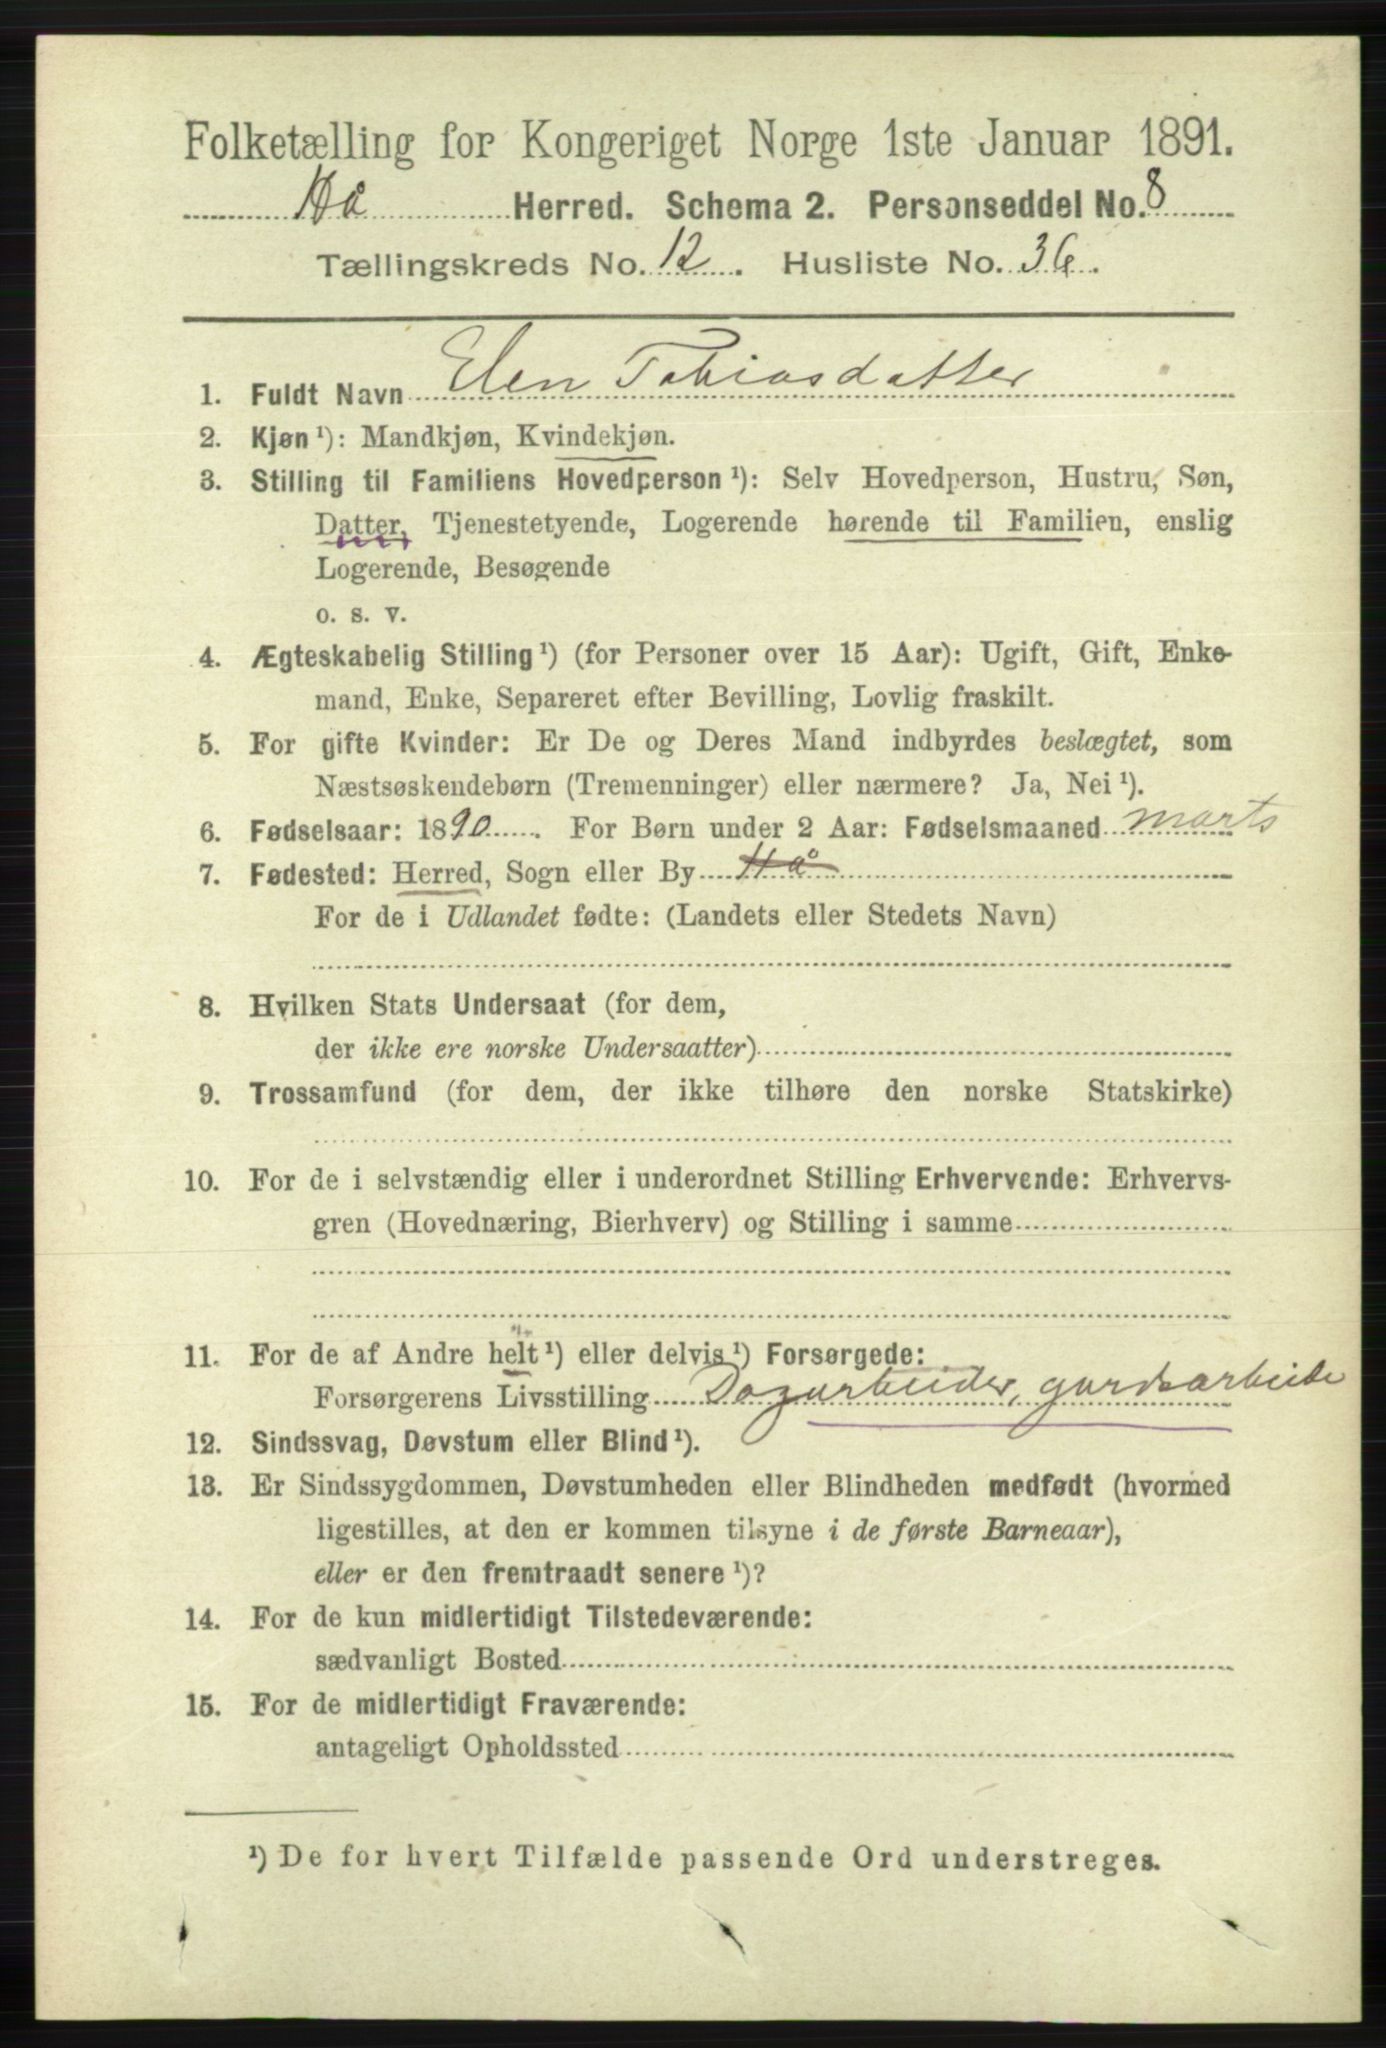 Folketælling for Kongeriget Norge 1ste Januar 1891.
Hå Herred. Schema 2. Personseddel No. 8
Tællingskreds No. 12. Husliste No. 36.
1. Fuldt Navn Elen Tobiasdatter
2. Kjøn ¹): Mandkjøn, Kvindekjøn.
3. Stilling til Familiens Hovedperson ¹): Selv Hovedperson, Hustru, Søn,
Datter, Tjenestetyende, Logerende hørende til Familien, enslig
Logerende, Besøgende
o. s. v.
4. Ægteskabelig Stilling ¹) (for Personer over 15 Aar): Ugift, Gift, Enke-
mand, Enke, Separeret efter Bevilling, Lovlig fraskilt.
5. For gifte Kvinder: Er De og Deres Mand indbyrdes beslægtet, som
Næstsøskendebørn (Tremenninger) eller nærmere? Ja, Nei ¹).
6. Fødselsaar: 1890. For Børn under 2 Aar: Fødselsmaaned marts
7. Fødested: Herred, Sogn eller By Hå
For de i Udlandet fødte: (Landets eller Stedets Navn)
8. Hvilken Stats Undersaat (for dem,
der ikke ere norske Undersaatter)
9. Trossamfund (for dem, der ikke tilhøre den norske Statskirke)
10. For de i selvstændig eller i underordnet Stilling Erhvervende: Erhvervs-
gren (Hovednæring, Bierhverv) og Stilling i samme
11. For de af Andre helt ¹) eller delvis ¹) Forsørgede:
Forsørgerens Livsstilling Dagarbeider, gardsarbeide
12. Sindssvag, Døvstum eller Blind ¹).
13. Er Sindssygdommen, Døvstumheden eller Blindheden medfødt (hvormed
ligestilles, at den er kommen tilsyne i de første Barneaar),
eller er den fremtraadt senere ¹)?
14. For de kun midlertidigt Tilstedeværende:
sædvanligt Bosted
15. For de midlertidigt Fraværende:
antageligt Opholdssted
¹) De for hvert Tilfælde passende Ord understreges.